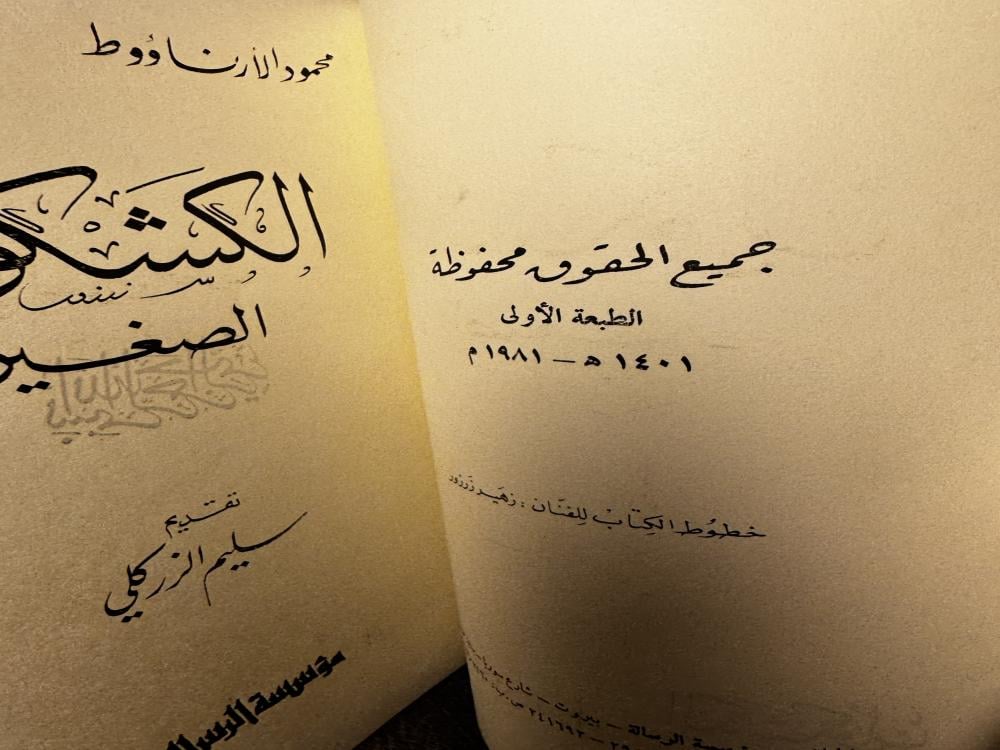 محمود الأرناؤوط
الكشكو
الصغير
تقديم
سليم الزركلي
مؤسسة الرسالة
جميع الحقوق محفوظة
الطبعة الأولى
١٤٠١ هـ - ١٩٨١ م
خطوط الكتاب للفنان : زهير زرزور
مؤسسة الرسالة - بيروت - شارع سوريا